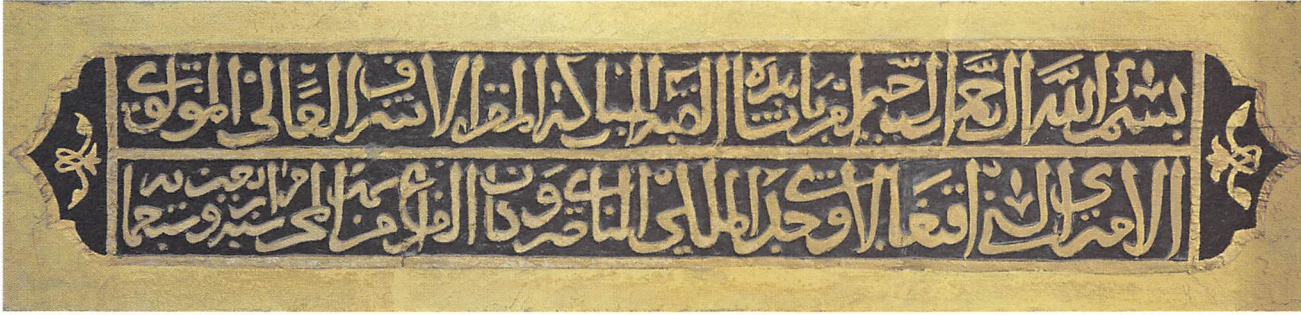 بسم الله الرحمن الرحيم امر بانشا هذه القبة المباركة المقر الاشرف العالى المولوى
الاميرى السيفى اقبغا الاوحدى الملكى الناصرى وكان الفراغ فى شهر المحرم سنة اربعين وسبعمايه